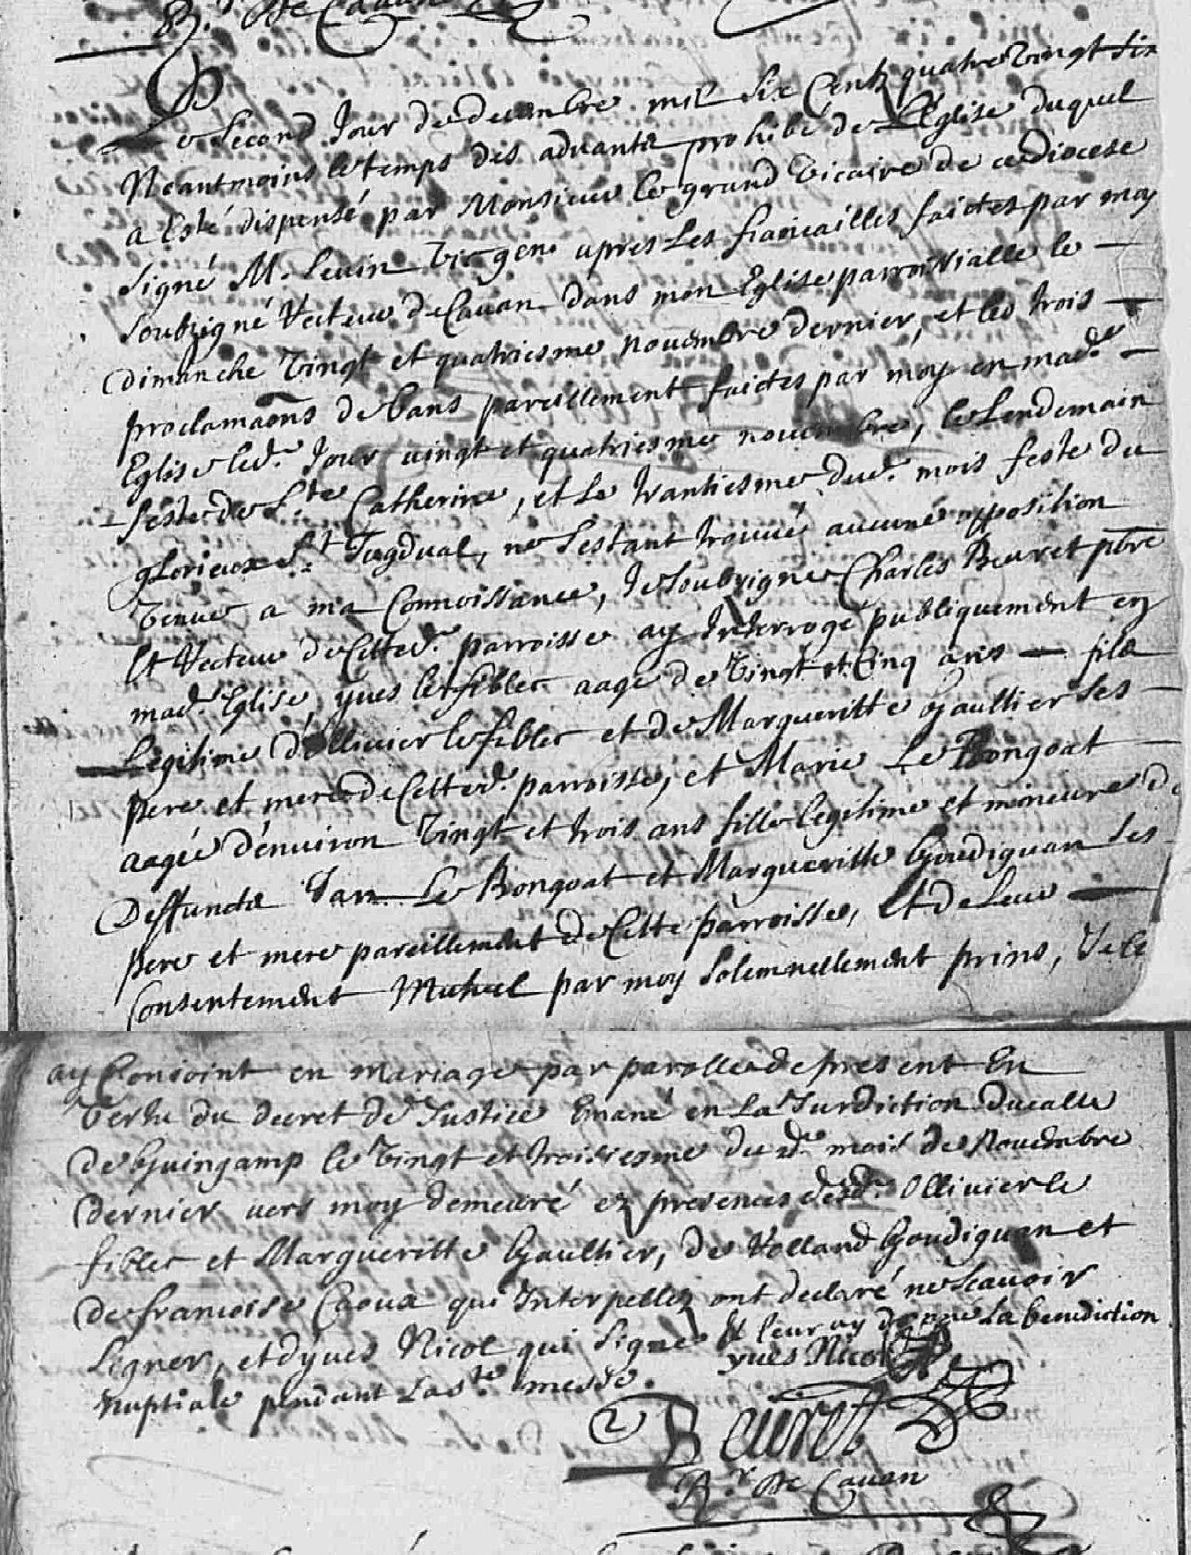 R.r de Cavan
Le second Jour de decembre mil six Cents quatre vingt six
Neantmoins le temps des advants prohibé de L'Eglise duquel
a Esté dispensé par Monsieur le grand vicaire de ce diocese
signé M. Levin vic gen. apres Les fiancailles faictes par moy
soubzigné Recteur de Cavan dans mon Eglise parroissialle le
dimanche vingt et quatriesme novembre dernier, et les trois
proclamaons de bans pareillement faictes par moy en mad.e
Eglise led.t Jour vingt et quatriesme novembre, le Lendemain
feste de S.te Catherine, et Le trantiesme dud.t mois feste du
glorieux S.t Tugdual, ne s'estant trouvé aucune opposition
venue a ma Connoissance, Je soubsigné Charles Beuret pbre
Et Recteur de Cette d.e parroisse ay Interrogé publiquement en
mad.e Eglise, yves le fiblec aagé de vingt et Cinq ans fils
Legitime d'ollivier le fiblec et de Margueritte gaultier ses
pere et mere de Cette d.e parroisse, et Marie Le Bongoat
aagée d'environ vingt et trois ans fille legitime et mineure de
Deffuncts Jan Le Bongoat et Margueritte Goudiguan ses
pere et mere pareillement de Cette parroisse, Et de Leur
Consentement Mutuel par moy solemnellement prins, Je le
ay Conioint en mariage par parolles de present En
vertu du decret de Justice Emané en La Jurdiction ducalle
de Guingamp le vingt et troisiesme du d.t mois de Novembre
dernier vers moy demeuré en presences desd.t Ollivier le
fiblec et Margueritte Gaultier, de Rolland Goudiguan et
de francoise Caoux qui Interpellez ont declaré ne scavoir
signer, et d'yves Nicol qui signe Et leur ay donne La benediction
yves Nicol
nuptiale pendant La s.te messe.
Beuret
R.r de Cavan